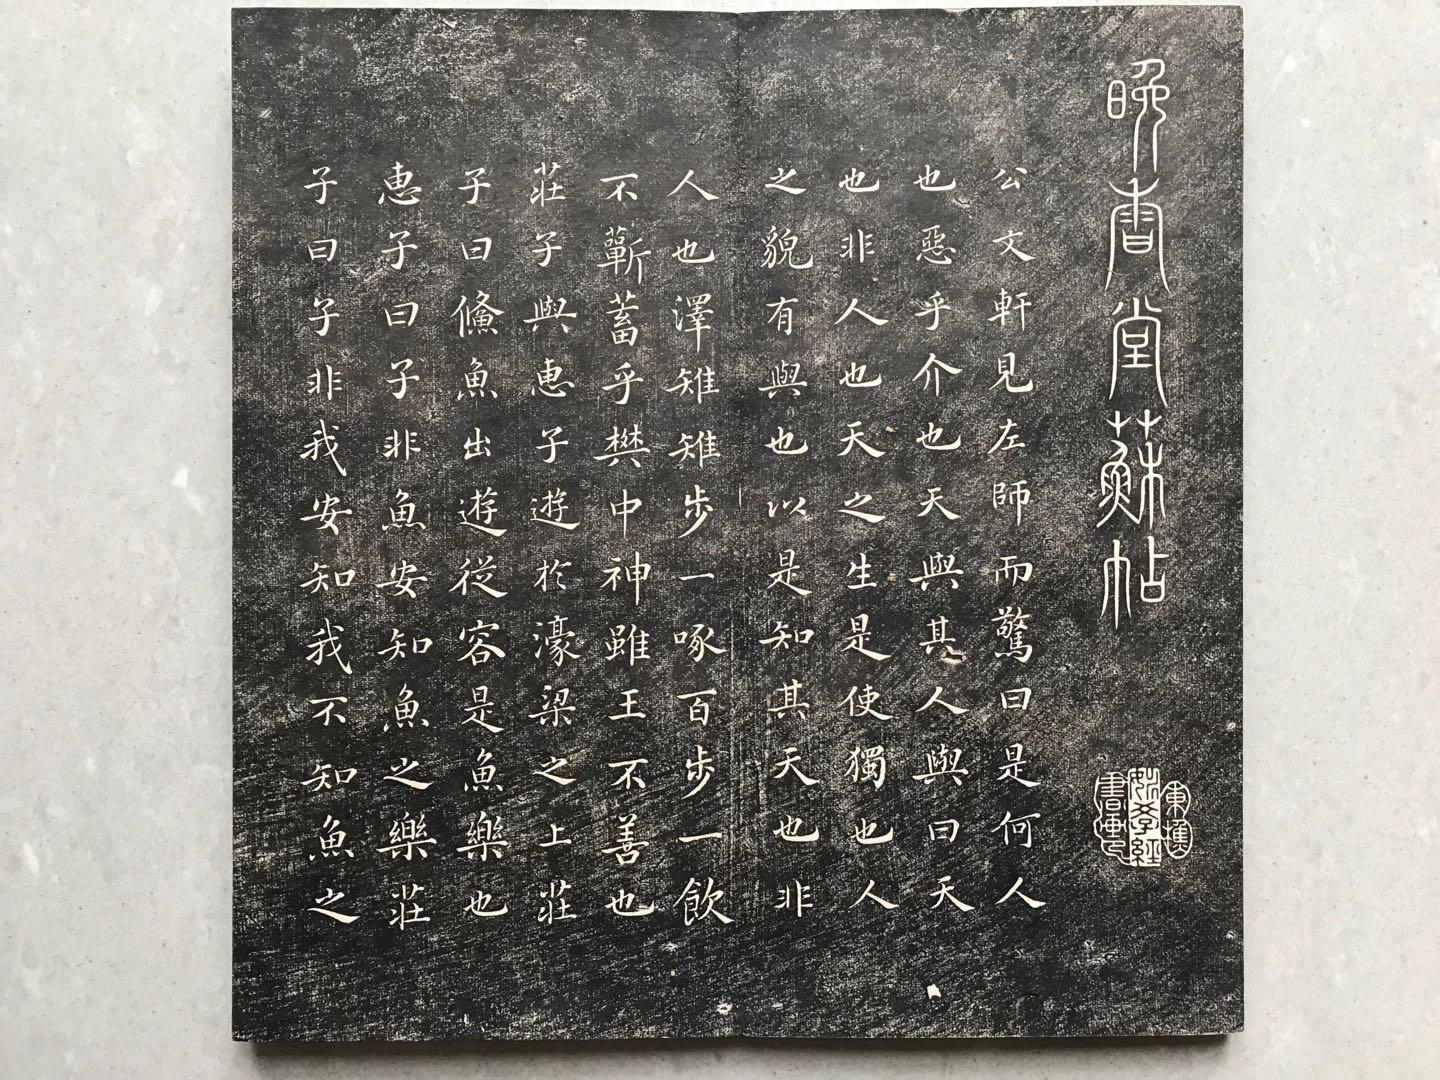 晚香堂蘇帖
公文軒見左師而驚曰是何人
也惡乎介也天與其人與曰天
也非人也天之生是使獨也人
之貌有與也以是知其天也非
人也澤雉雉步一啄百步一飲
不蘄蓄乎樊中神雖王不善也
莊子與惠子遊於濠梁之上莊
子曰鯈魚出遊從容是魚樂也
惠子曰子非魚安知魚之樂莊
子曰子非我安知我不知魚之